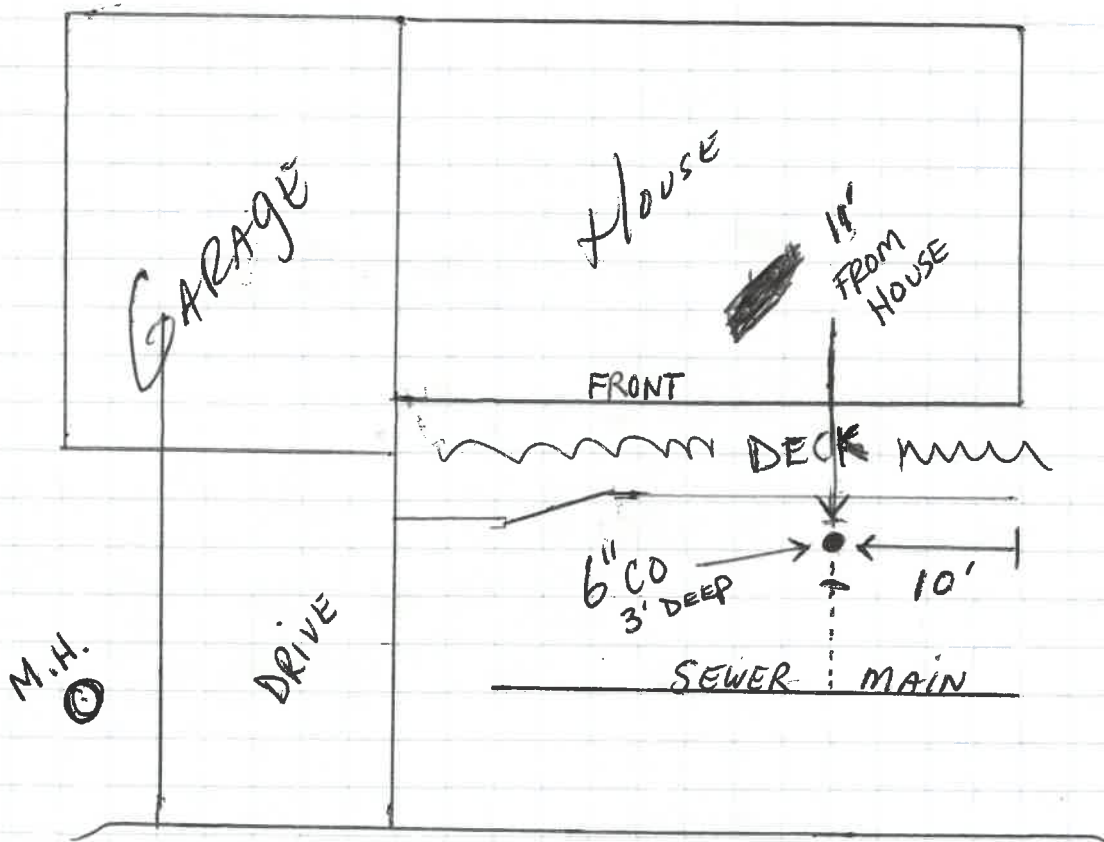 GARAGE
HOUSE
11'
FROM
HOUSE
FRONT
DECK
6" CO
3' DEEP
10'
M.H.
DRIVE
SEWER MAIN